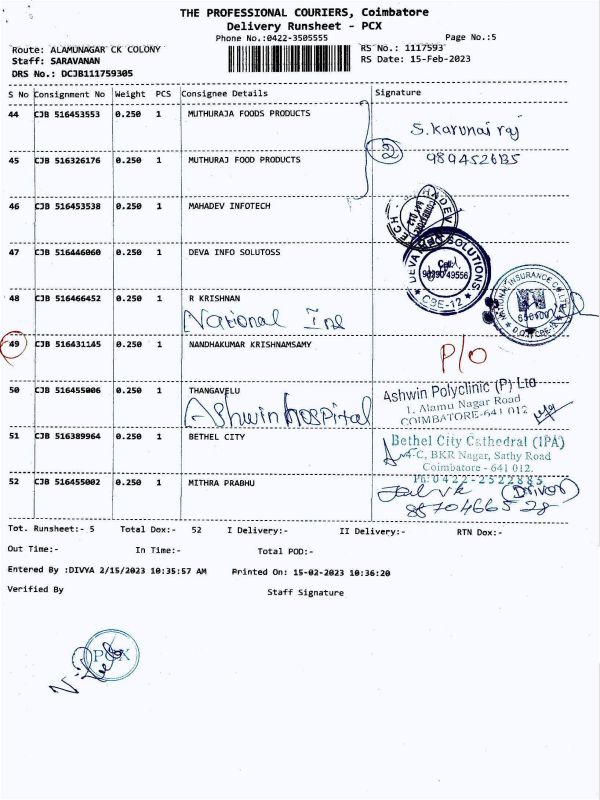 THE PROFESSIONAL COURIERS, Coimbatore
Delivery Runsheet - PCX
Phone No.:0422-3505555 Page No.:5
Route: ALAMUNAGAR CK COLONY RS No.: 1117593
Staff: SARAVANAN RS Date: 15-Feb-2023
DRS No.: DCJB111759305
S No Consignment No Weight PCS Consignee Details Signature
44 CJB 516453553 0.250 1 MUTHURAJA FOODS PRODUCTS
S. Karunai raj
45 CJB 516326176 0.250 1 MUTHURAJ FOOD PRODUCTS 2
46 CJB 516453538 0.250 1 MAHADEV INFOTECH
47 CJB 516446060 0.250 1 DEVA INFO SOLUTOSS
DEVA INFO SOLUTIONS
Cell:
98990 49556
* CBE-12 *
48 CJB 516466452 0.250 1 R KRISHNAN
NATIONAL INSURANCE CO LTD
National Ins
49 CJB 516431145 0.250 1 NANDHAKUMAR KRISHNAMSAMY
P/O
50 CJB 516455006 0.250 1 THANGAVELU
Ashwin hospital
Ashwin Polyclinic (P) Ltd
1. Alamu Nagar Road
COIMBATORE-641 012
51 CJB 516389964 0.250 1 BETHEL CITY
Bethel City Cathedral (IPA)
4-C, BKR Nagar, Sathy Road
Coimbatore - 641 012.
Ph:0422-2522885
52 CJB 516455002 0.250 1 MITHRA PRABHU
(Driver)
8870466528
Tot. Runsheet:- 5 Total Dox:- 52 I Delivery:- II Delivery:- RTN Dox:-
Out Time:- In Time:- Total POD:-
Entered By :DIVYA 2/15/2023 10:35:57 AM Printed On: 15-02-2023 10:36:20
Verified By Staff Signature
PCX